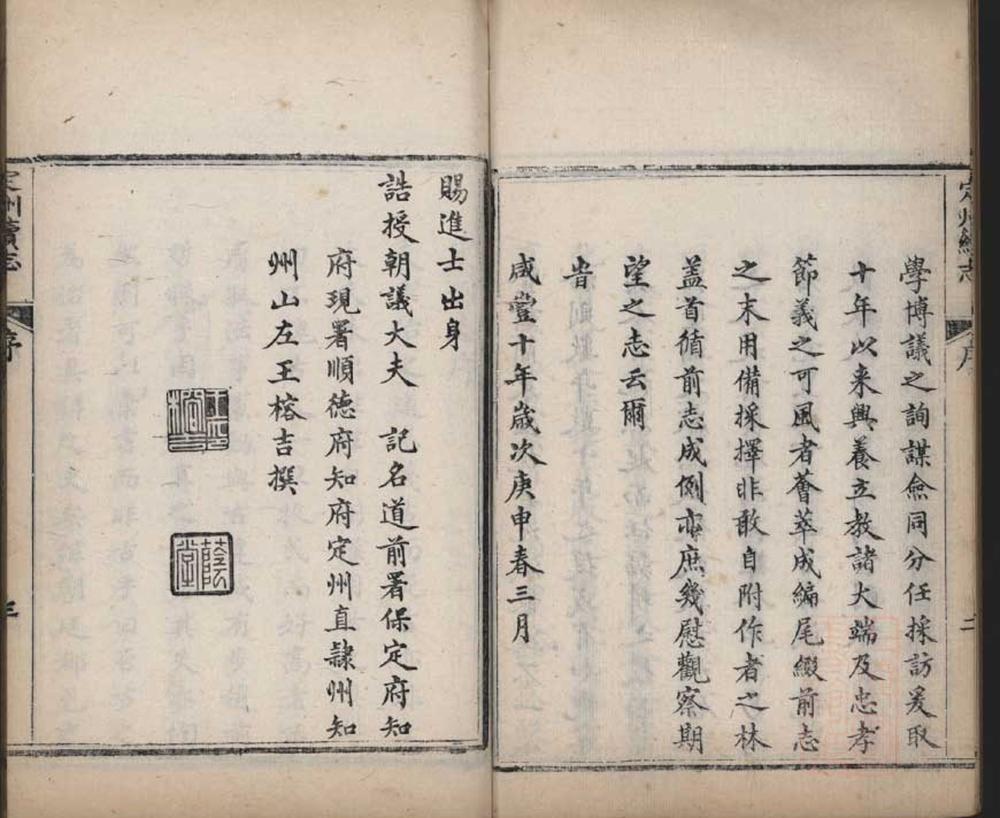 定州續志
序
二
學博議之詢謀僉同分任採訪爰取
十年以来興養立教諸大端及忠孝
節義之可風者薈萃成編尾綴前志
之末用備採擇非敢自附作者之林
盖首循前志成例亦庶幾慰觀察期
望之志云爾
旹
咸豐十年歲次庚申春三月
賜進士出身
誥授朝議大夫 記名道前署保定府知
府現署順德府知府定州直隸州知
州山左王榕吉撰
王印榕吉
蔭堂
定州續志
序
三